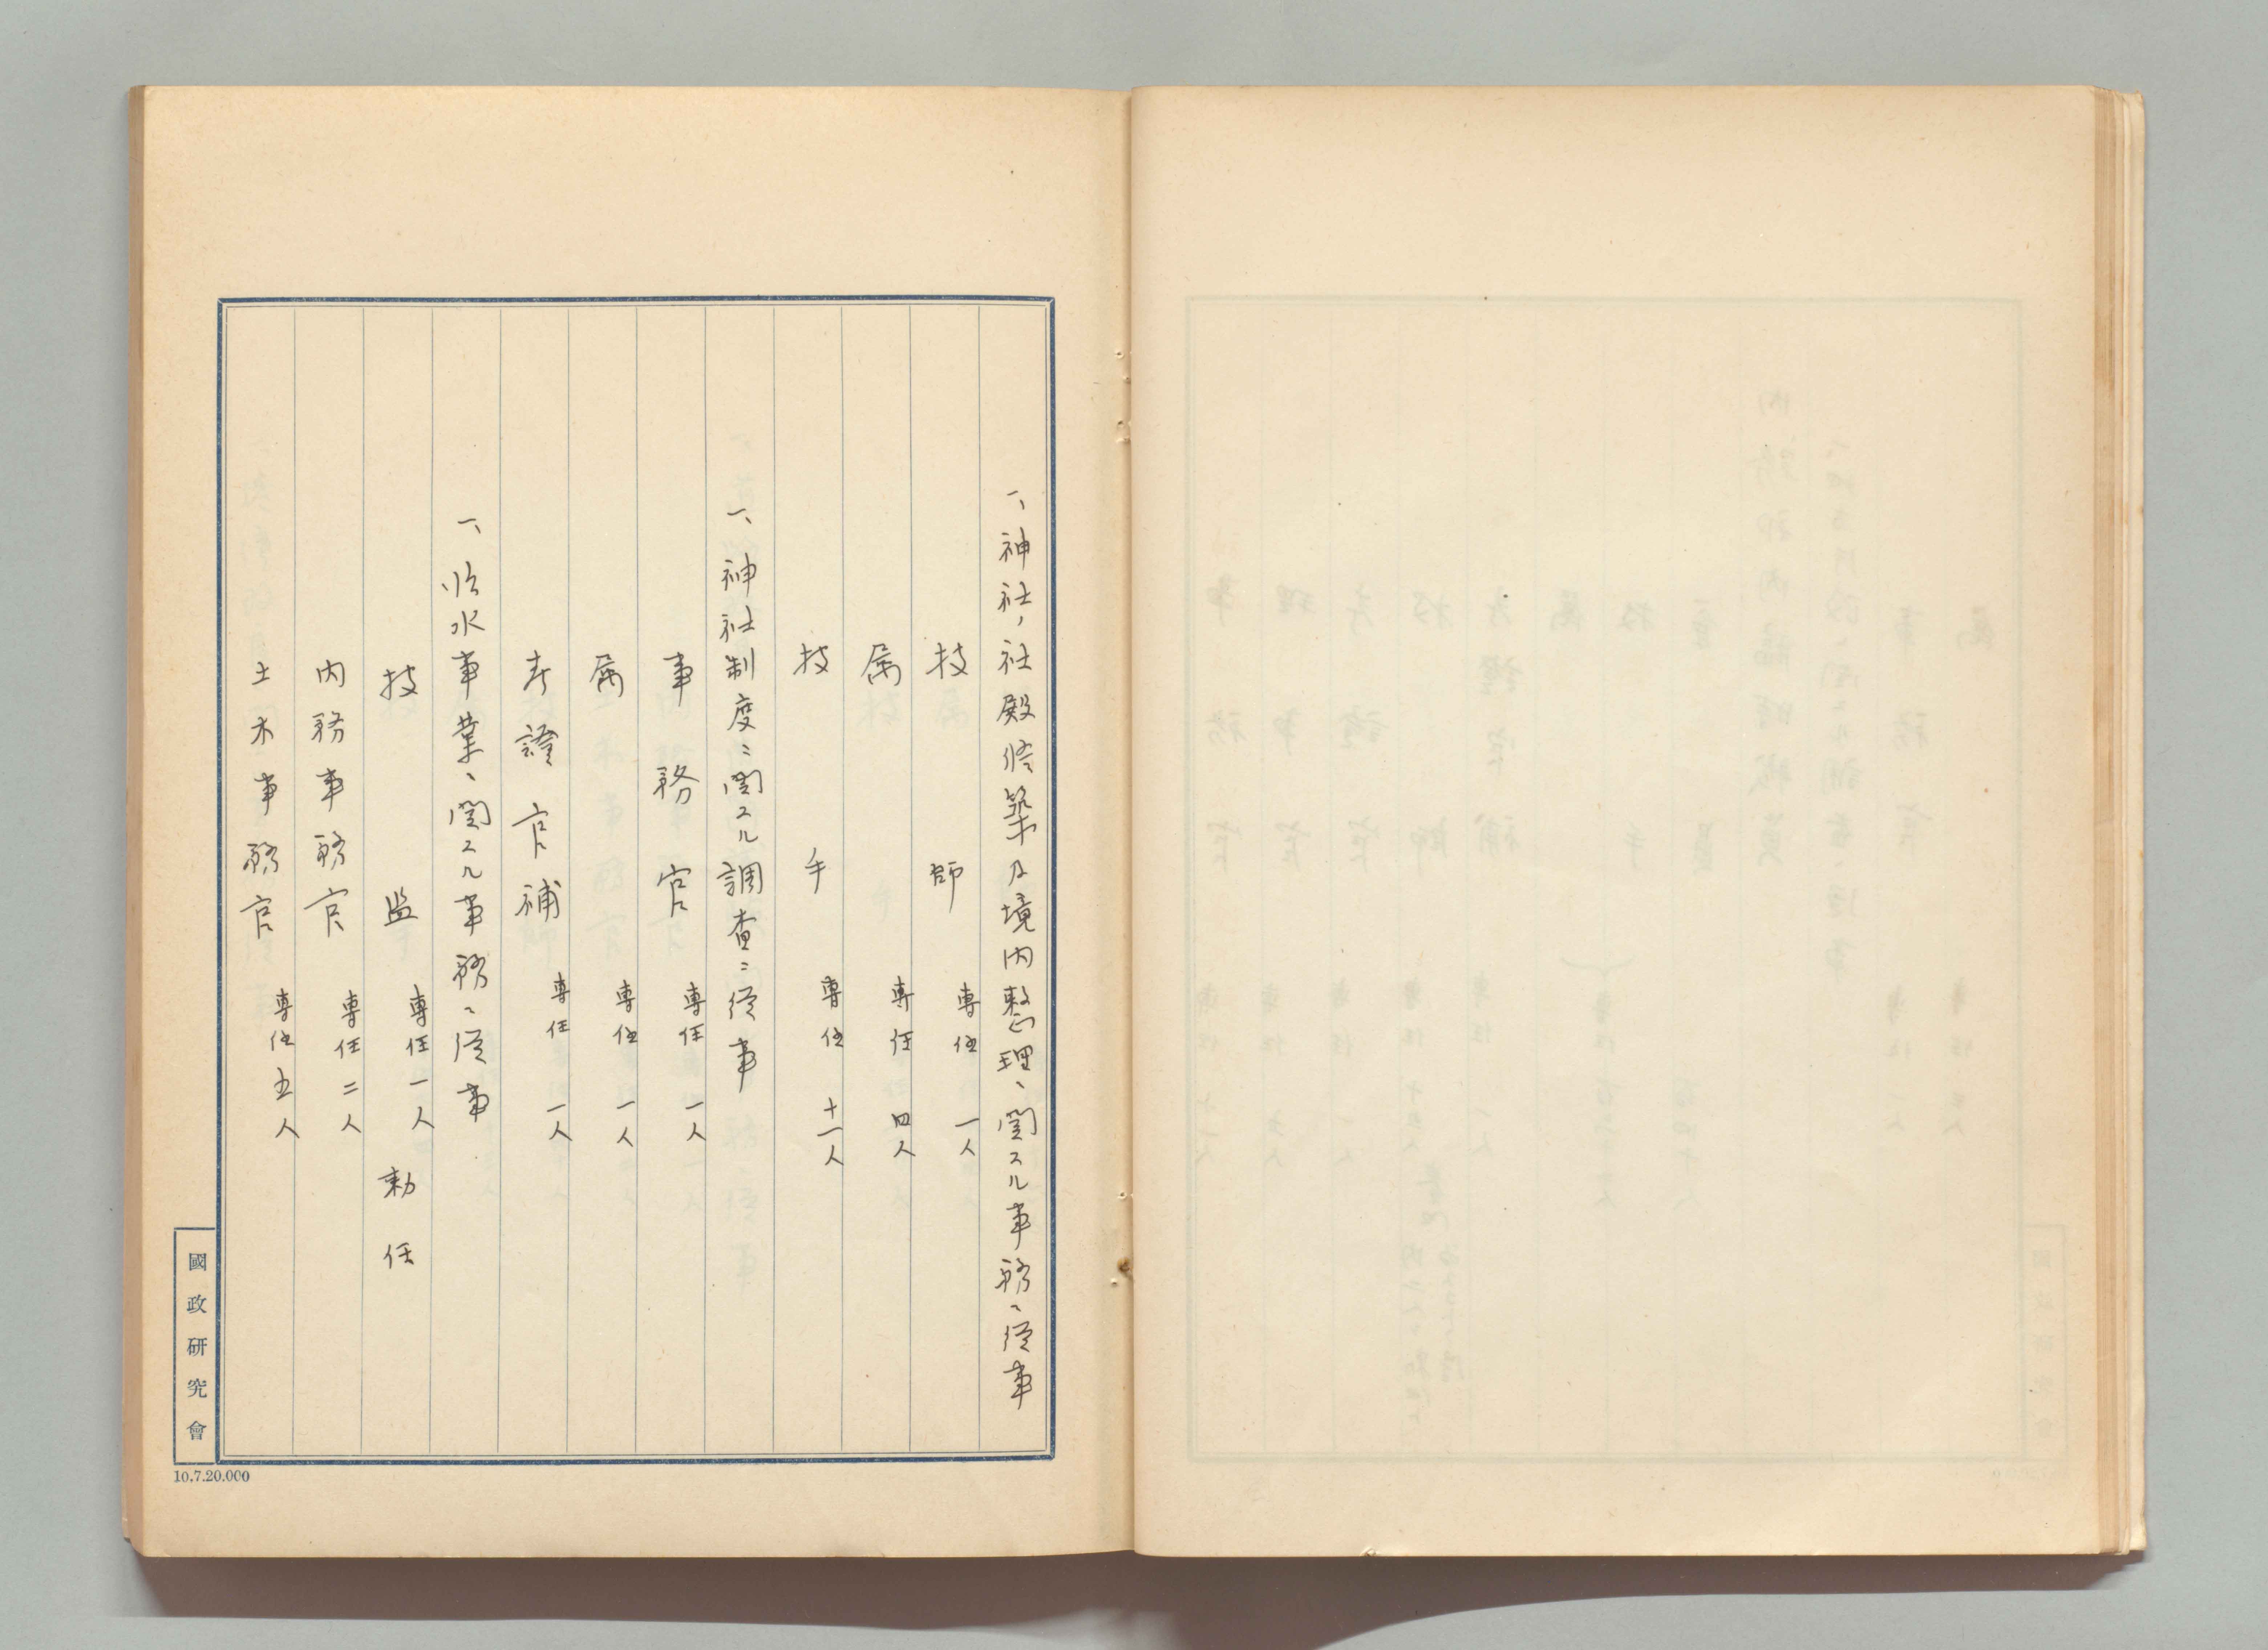 一、神社ノ社殿修築及境内整理ニ関スル事務ニ従事
技師 専任 一人
属 専任 四人
技手 専任 十一人
一、神社制度ニ関スル調査ニ従事
事務官 専任 一人
属 専任 一人
考證官補 専任 一人
一、治水事業ニ関スル事務ニ従事
技監 専任 一人 勅任
内務事務官 専任 二人
土木事務官 専任 五人
國政研究會
10.7.20.000